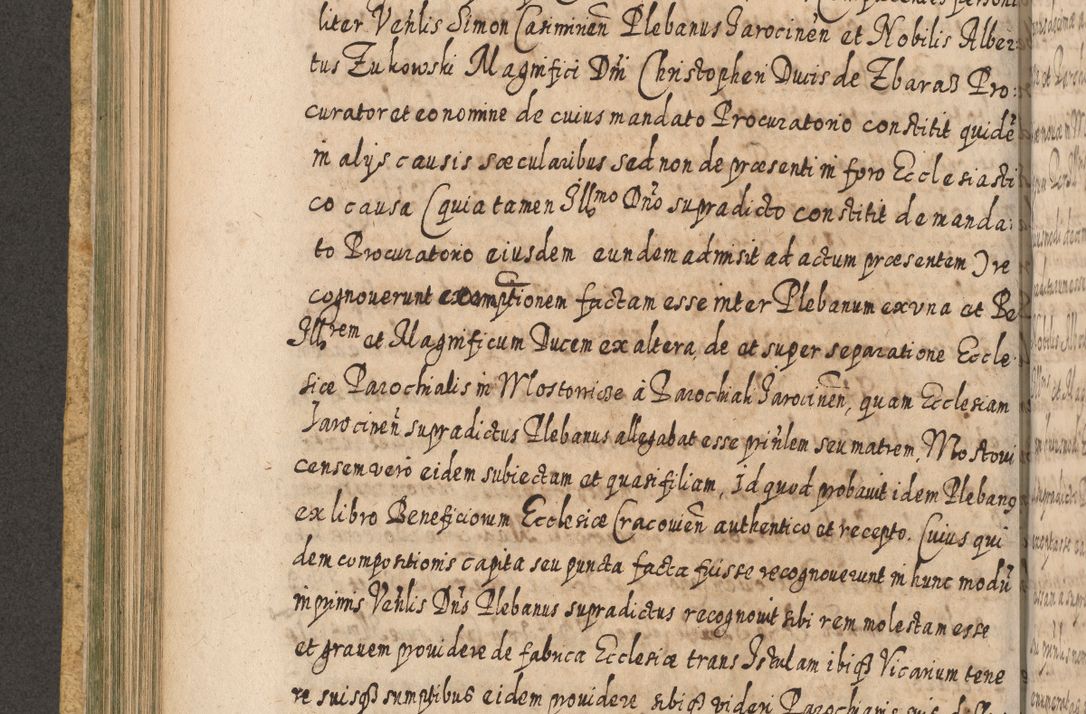 liter Venlis Simon Casiminen Plebanus Jarocinen et Nobilis Alber
tus Zukowski Magnifici Dni Christopheri Ducis de Zbaraß Pro:
curator et eo nomine de cuius mandato Procuratorio constitit quidē
in alijs causis sæcularibus sed non de præsenti in foro Ecclesiasti
co causa (quia tamen Illmo Dno supradicto constitit de manda:
to Procuratorio eiusdem eundem admisit ad actum præsentem) re
cognoverunt factam esse inter Plebanum ex vna et
Illrem et Magnificum Ducem ex altera, de et super separatione Eccle
siæ Parochialis in à Parochiali Jarocinen, quam Ecclesiam
Jarocinen supradictus Plebanus allegabat esse prinlem seu matrem, Mostowi
censem verò eidem subiectam et quasi filiam, Id quod probavit idem Plebanꝯ
ex libro Beneficiorum Ecclesiæ Cracovien authentico et recepto. Cuius qui
dem compositionis capita seu puncta facta fuisse recognouerunt in hunc modū
inprimis Venlis Dns Plebanus supradictus recognovit sibi rem molestam esse
et gravem providere de fabrica Ecclesiæ trans Istulam ibiqȝ Vicarium tene
re suisqȝ sumptibus eidem providere sibiqȝ videri Parochianis suis